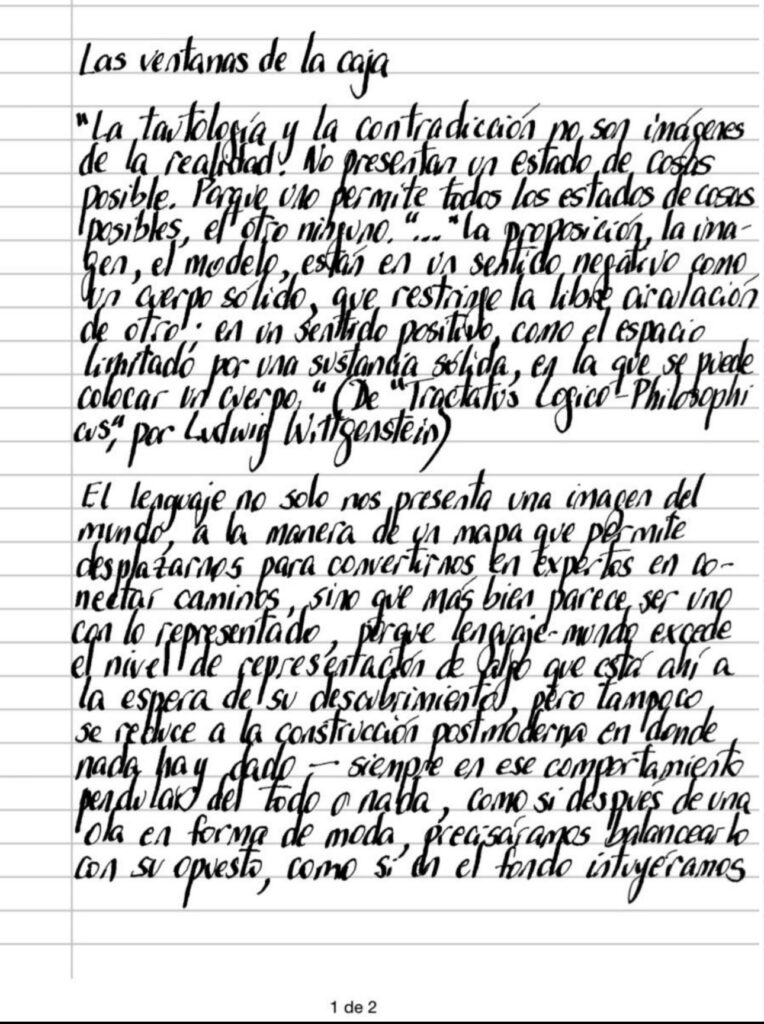 Las ventanas de la caja
"La tautología y la contradicción no son imágenes
de la realidad. No presentan un estado de cosas
posible. Porque uno permite todos los estados de cosas
posibles, el otro ninguno. "..." La proposición, la ima-
gen, el modelo, están en un sentido negativo como
un cuerpo sólido, que restringe la libre circulación
de otro; en un sentido positivo, como el espacio
limitado por una sustancia sólida, en la que se puede
colocar un cuerpo." (De "Tractatus Logico-Philosophi
cus", por Ludwig Wittgenstein)
El lenguaje no solo nos presenta una imagen del
mundo, a la manera de un mapa que permite
desplazarnos para convertirnos en expertos en co-
nectar caminos, sino que más bien parece ser uno
con lo representado, porque lenguaje-mundo excede
el nivel de representación de algo que está ahí a
la espera de su descubrimiento, pero tampoco
se reduce a la construcción postmoderna en donde
nada hay dado — siempre en ese comportamiento
pendular del todo o nada, como si después de una
ola en forma de moda, precisáramos balancearlo
con su opuesto, como si en el fondo intuyéramos
1 de 2